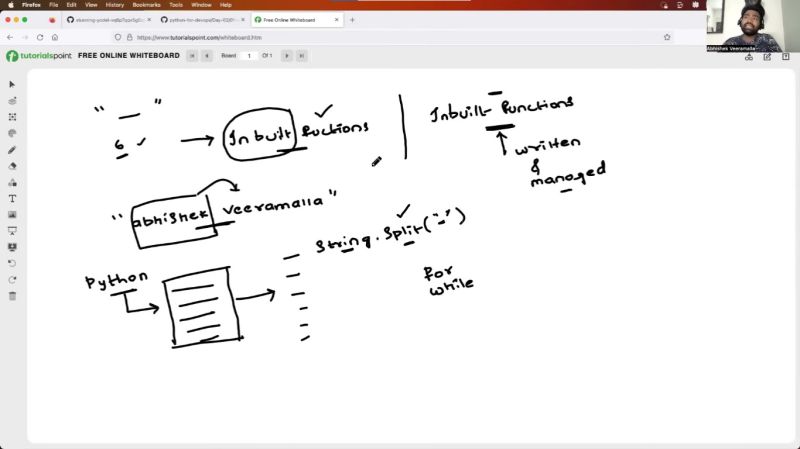 Firefox File Edit View History Bookmarks Tools Window Help
Free Online Whiteboard
https://www.tutorialspoint.com/whiteboard.htm
tutorialspoint FREE ONLINE WHITEBOARD Board 1 Of 1
Abhishek Veeramalla
" — "
6 → Inbuilt fuctions
Inbuilt functions
written
&
managed
"abhishek Veeramalla"
String.split("-")
Python
for
while